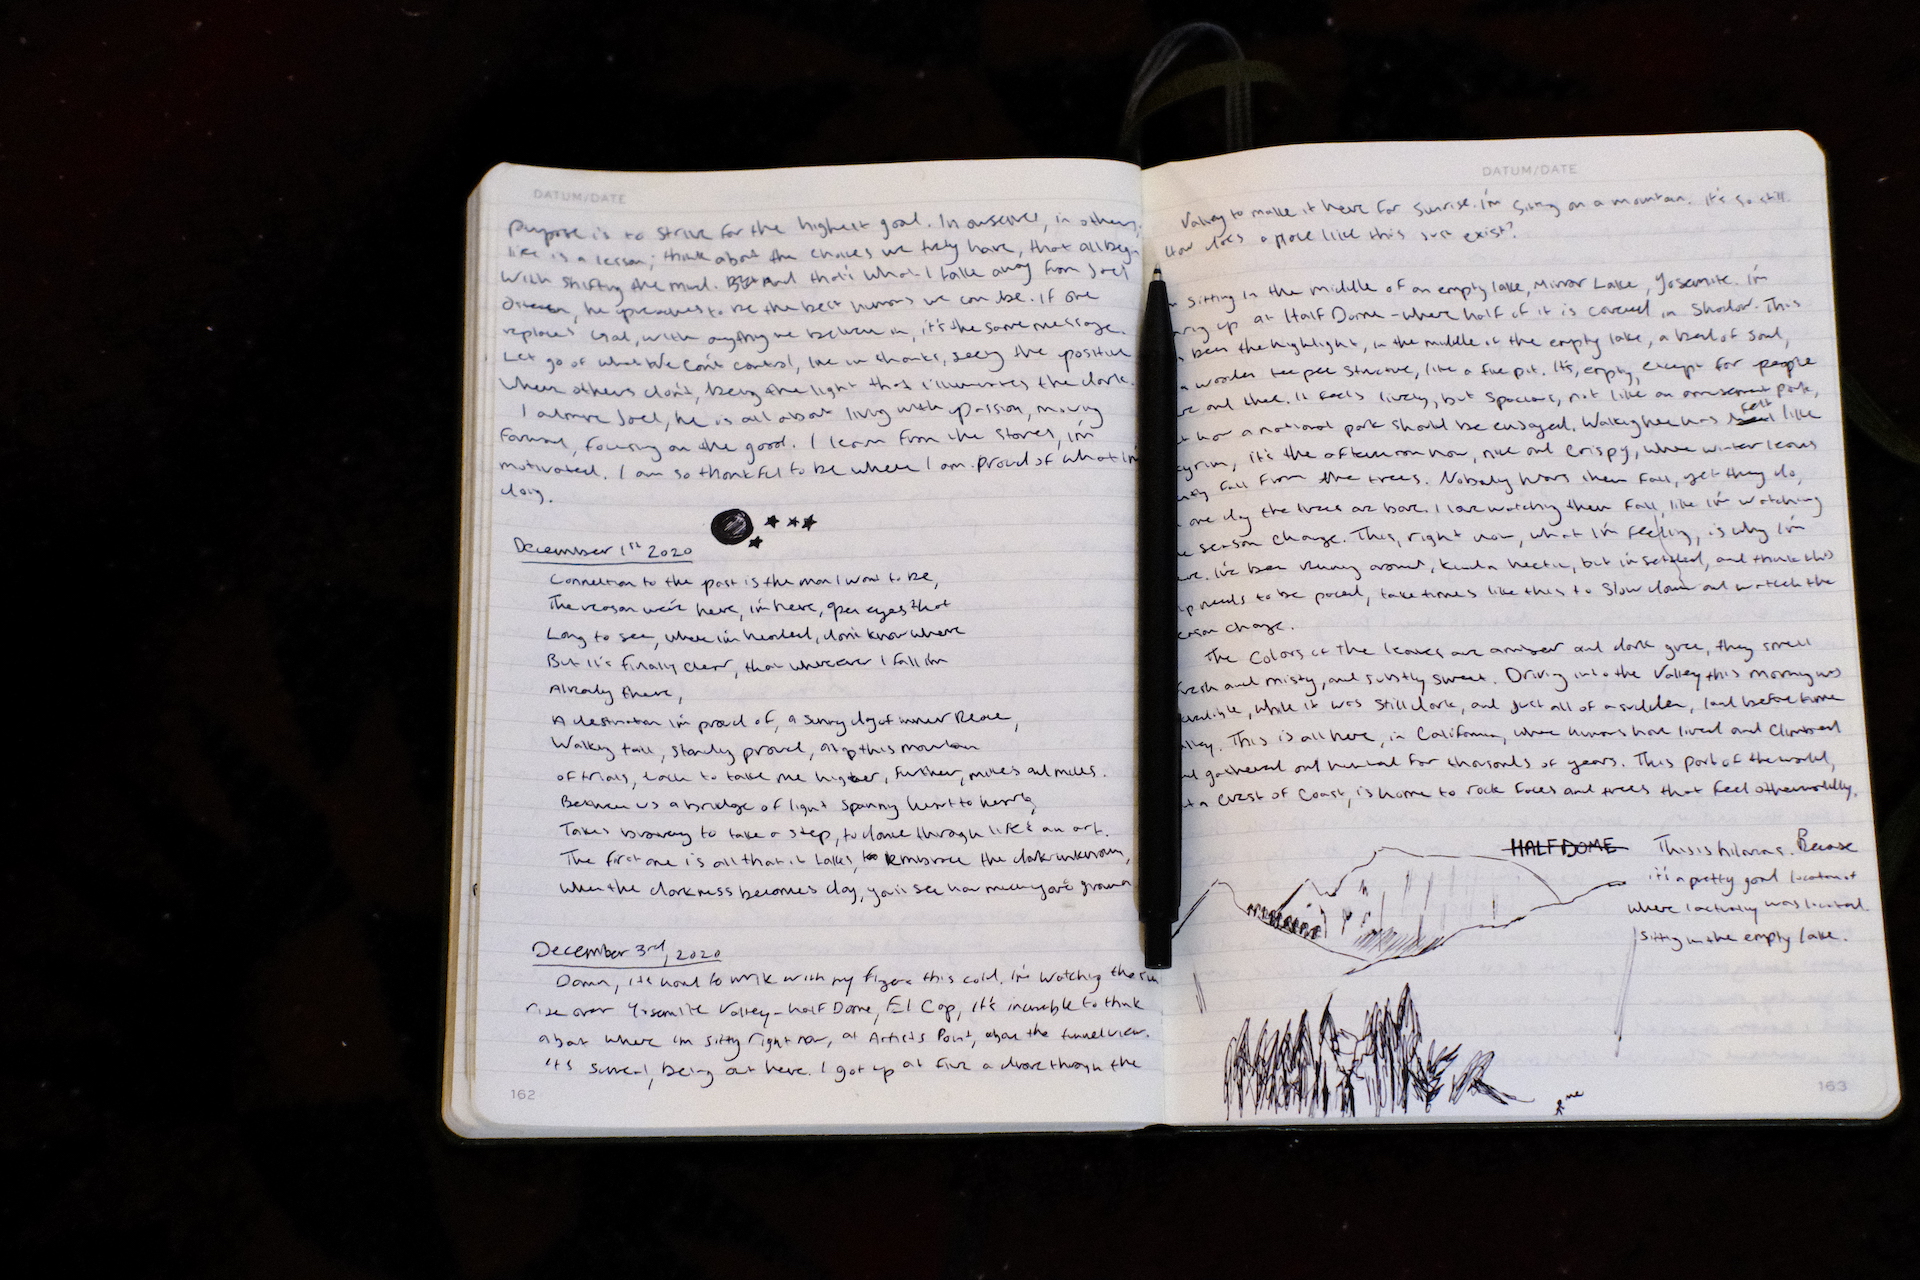 DATUM/DATE
Purpose is to strive for the highest goal. In ourselves, in others,
life is a lesson; think about the choices we truly have, that all begin
with shifting the mind. And that's what I take away from Joel
he preaches to be the best humans we can be. If one
replaces God, with anything we believe in, it's the same message.
Let go of what we can't control, live in thanks, seeing the positive
when others don't, being the light that illuminates the dark.
I admire Joel, he is all about living with passion, moving
forward, focusing on the good. I learn from the stories, I'm
motivated. I am so thankful to be where I am. Proud of what I'm
doing.
December 1st 2020
Connection to the past is the man I want to be,
The reason we're here, I'm here, open eyes that
Long to see, where I'm headed, don't know where
But it's finally clear, that wherever I fall I'm
Already there,
A destination I'm proud of, a sunny day of inner peace,
Walking tall, standing proud, atop this mountain
of trials, each to take me higher, further, miles and miles.
Between us a bridge of light spanning heart to heart,
Takes bravery to take a step, to dance through life's an art.
The first one is all that it takes, to embrace the dark unknown,
When the darkness becomes day, you'll see how much you've grown
December 3rd, 2020
Damn, it's hard to write with my fingers this cold. I'm watching the sun
rise over Yosemite Valley - Half Dome, El Cap, it's incredible to think
about where I'm sitting right now, at Artist's Point, above the tunnel view.
It's surreal, being out here. I got up at five a drove through the
162
DATUM/DATE
Valley to make it here for sunrise. I'm sitting on a mountain. It's so still.
How does a place like this just exist?
sitting in the middle of an empty lake, Mirror Lake, Yosemite. I'm
up at Half Dome - where half of it is covered in shadow. This
been the highlight, in the middle of the empty lake, a bed of soil,
a wooden teepee structure, like a fire pit. It's empty, except for people
here and there. It feels lively, but spacious, not like an amusement park,
but how a national park should be enjoyed. Walking here has felt like
Skyrim, it's the afternoon now, nice and crispy, where winter leaves
fall from the trees. Nobody hears them fall, yet they do,
one day the trees are bare. I love watching them fall, like I'm watching
the season change. This, right now, what I'm feeling, is why I'm
here. I've been running around, kinda hectic, but I'm settled, and think this
trip needs to be paced, take times like this to slow down and watch the
season change.
The colors of the leaves are amber and dark green, they smell
fresh and misty, and subtly sweet. Driving into the Valley this morning was
incredible, while it was still dark, and just all of a sudden, land before time
valley. This is all here, in California, where humans have lived and climbed
and gathered and hunted for thousands of years. This part of the world,
coast, is home to rock faces and trees that feel otherworldly.
HALF DOME
This is hilarious. Because
it's a pretty good location of
where I actually was located
sitting in the empty lake.
me
163